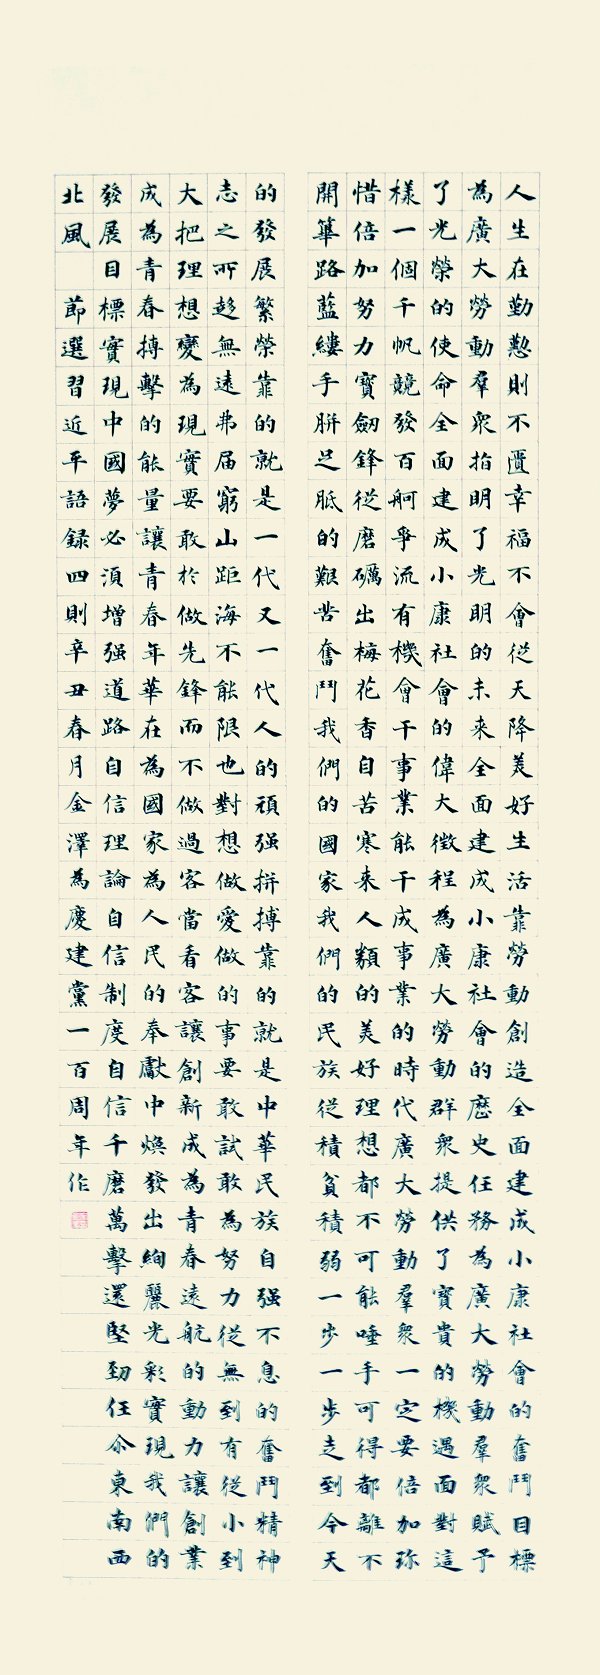 人生在勤懃則不匱幸福不會從天降美好生活靠勞動創造全面建成小康社會的奮鬥目標
為廣大勞動羣衆指明了光明的未來全面建成小康社會的歷史任務為廣大勞動羣衆賦予
了光榮的使命全面建成小康社會的偉大徵程為廣大勞動群衆提供了寶貴的機遇面對這
樣一個千帆競發百舸爭流有機會干事業能干成事業的時代廣大勞動羣衆一定要倍加珎
惜倍加努力寶劍鋒從磨礪出梅花香自苦寒来人類的美好理想都不可能唾手可得都離不
開篳路藍縷手胼足胝的艱苦奮鬥我們的國家我們的民族從積貧積弱一步一步走到今天
的發展繁榮靠的就是一代又一代人的頑强拼搏靠的就是中華民族自强不息的奮鬥精神
志之所趍無遠弗届窮山距海不能限也對想做愛做的事要敢試敢為努力從無到有從小到
大把理想變為現實要敢於做先鋒而不做過客當看客讓創新成為青春遠航的動力讓創業
成為青春搏擊的能量讓青春年華在為國家為人民的奉獻中煥發出絢麗光彩實現我們的
發展目標實現中國夢必須增强道路自信理論自信制度自信千磨萬擊還堅劲任尒東南西
北風 節選習近平語録四則辛丑春月金澤為慶建黨一百周年作